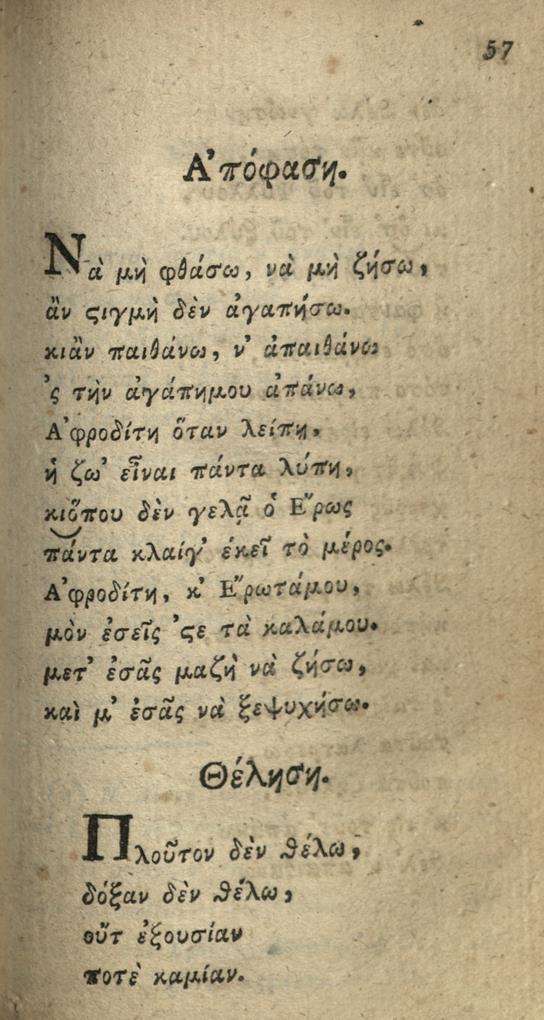 57
Α᾽πόφαση.
Νὰ μὴ φθάσω, νὰ μὴ ζήσω,
ἂν ϛιγμὴ δὲν ἀγαπήσω.
κιἂν παιθάνω, ν᾽ ἀπαιθάνω
᾽ς τὴν ἀγάπημου ἀπάνω,
Α᾽φροδίτη ὅταν λείπη,
ἡ ζω᾽ εἶναι πάντα λύπη,
κιὅπου δὲν γελᾷ ὁ Ε῎ρως
πάντα κλαίγ᾽ ἐκεῖ τὸ μέρος.
Α᾽φροδίτη, κ᾽ Ε῎ρωτάμου,
μὸν ἐσεῖς ᾽ϛε τὰ καλάμου.
μετ᾽ ἐσᾶς μαζὴ νὰ ζήσω,
καὶ μ᾽ ἐσᾶς νὰ ξεψυχήσω.
Θέληση.
Πλοῦτον δὲν θέλω,
δόξαν δὲν θέλω,
οὔτ ἐξουσίαν
ποτὲ καμίαν.